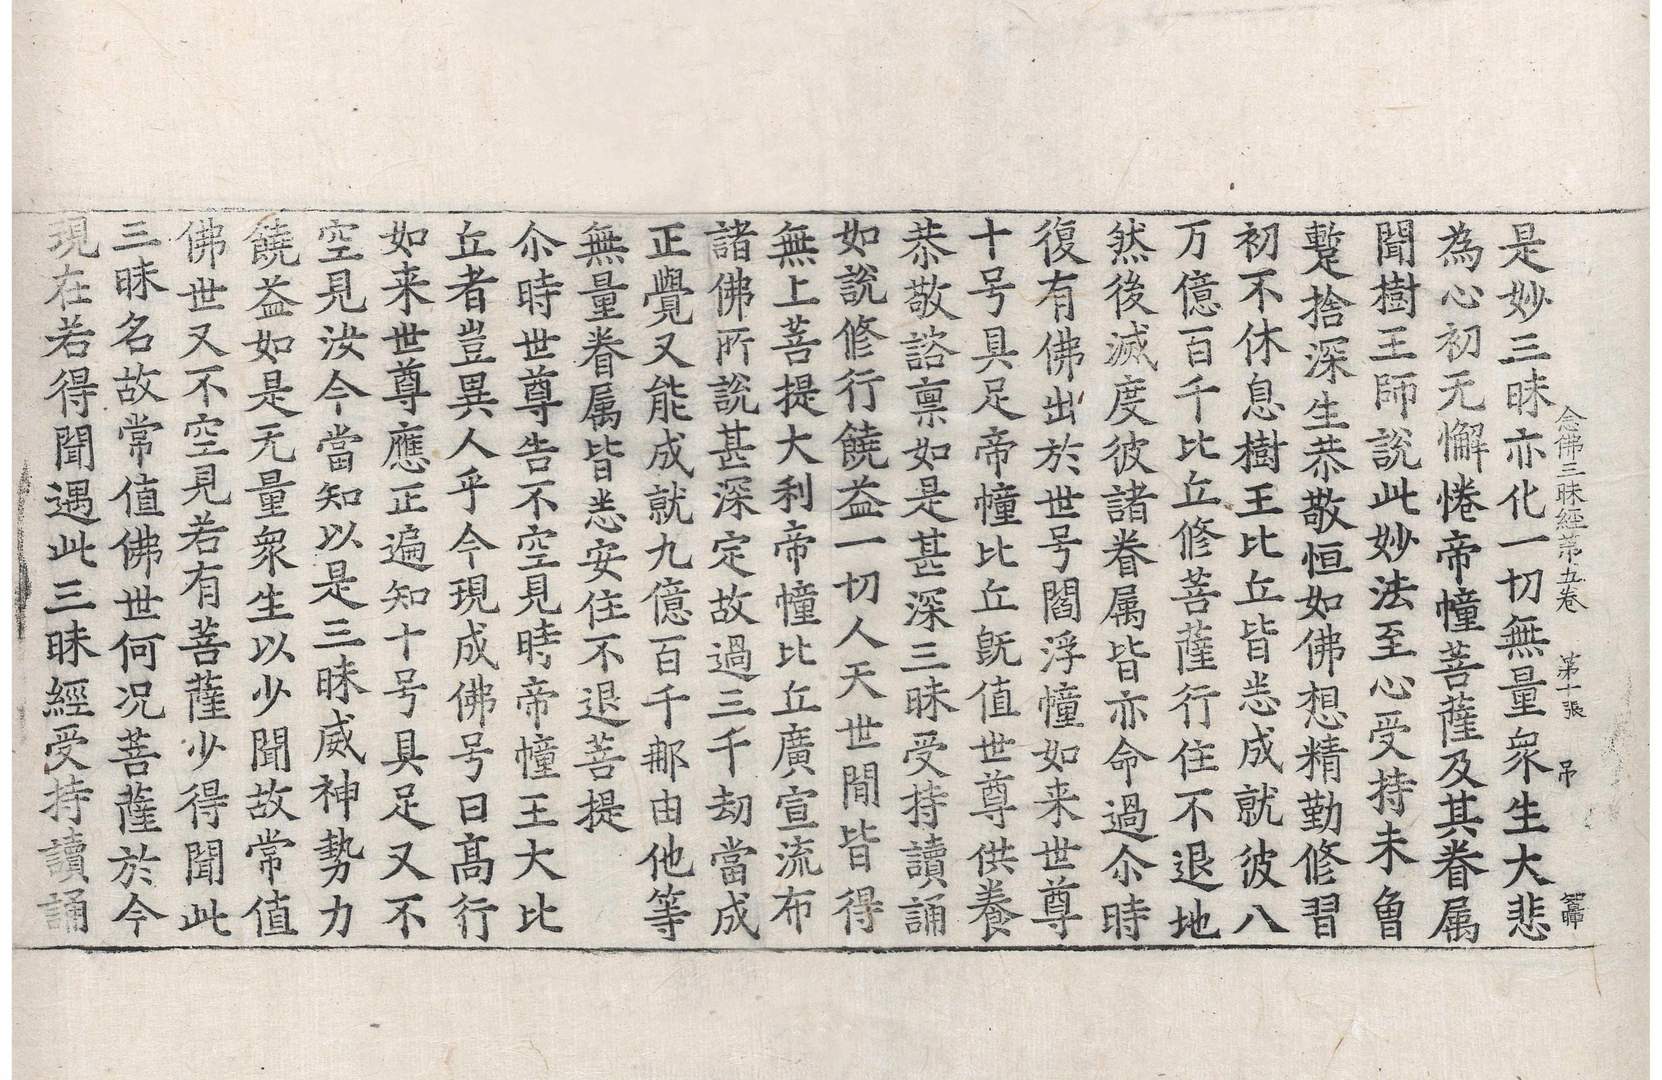 念佛三昧經苐五卷 第十張 吊
是妙三昧亦化一切無量衆生大悲
為心初无懈惓帝幢菩薩及其眷属
聞樹王師說此妙法至心受持未曽
蹔捨深生恭敬恒如佛想精勤修習
初不休息樹王比丘皆悉成就彼八
万億百千比丘修菩薩行住不退地
然後滅度彼諸眷属皆亦命過尒時
復有佛出於世号閻浮幢如来世尊
十号具足帝幢比丘既值世尊供養
恭敬諮禀如是甚深三昧受持讀誦
如說修行饒益一切人天世間皆得
無上菩提大利帝幢比丘廣宣流布
諸佛所說甚深定故過三千劫當成
正覺又能成就九億百千那由他等
無量眷属皆悉安住不退菩提
尒時世尊告不空見時帝幢王大比
丘者豈異人乎今現成佛号曰髙行
如来世尊應正遍知十号具足又不
空見汝今當知以是三昧威神勢力
饒益如是无量衆生以少聞故常值
佛世又不空見若有菩薩少得聞此
三昧名故常值佛世何况菩薩於今
現在若得聞遇此三昧經受持讀誦